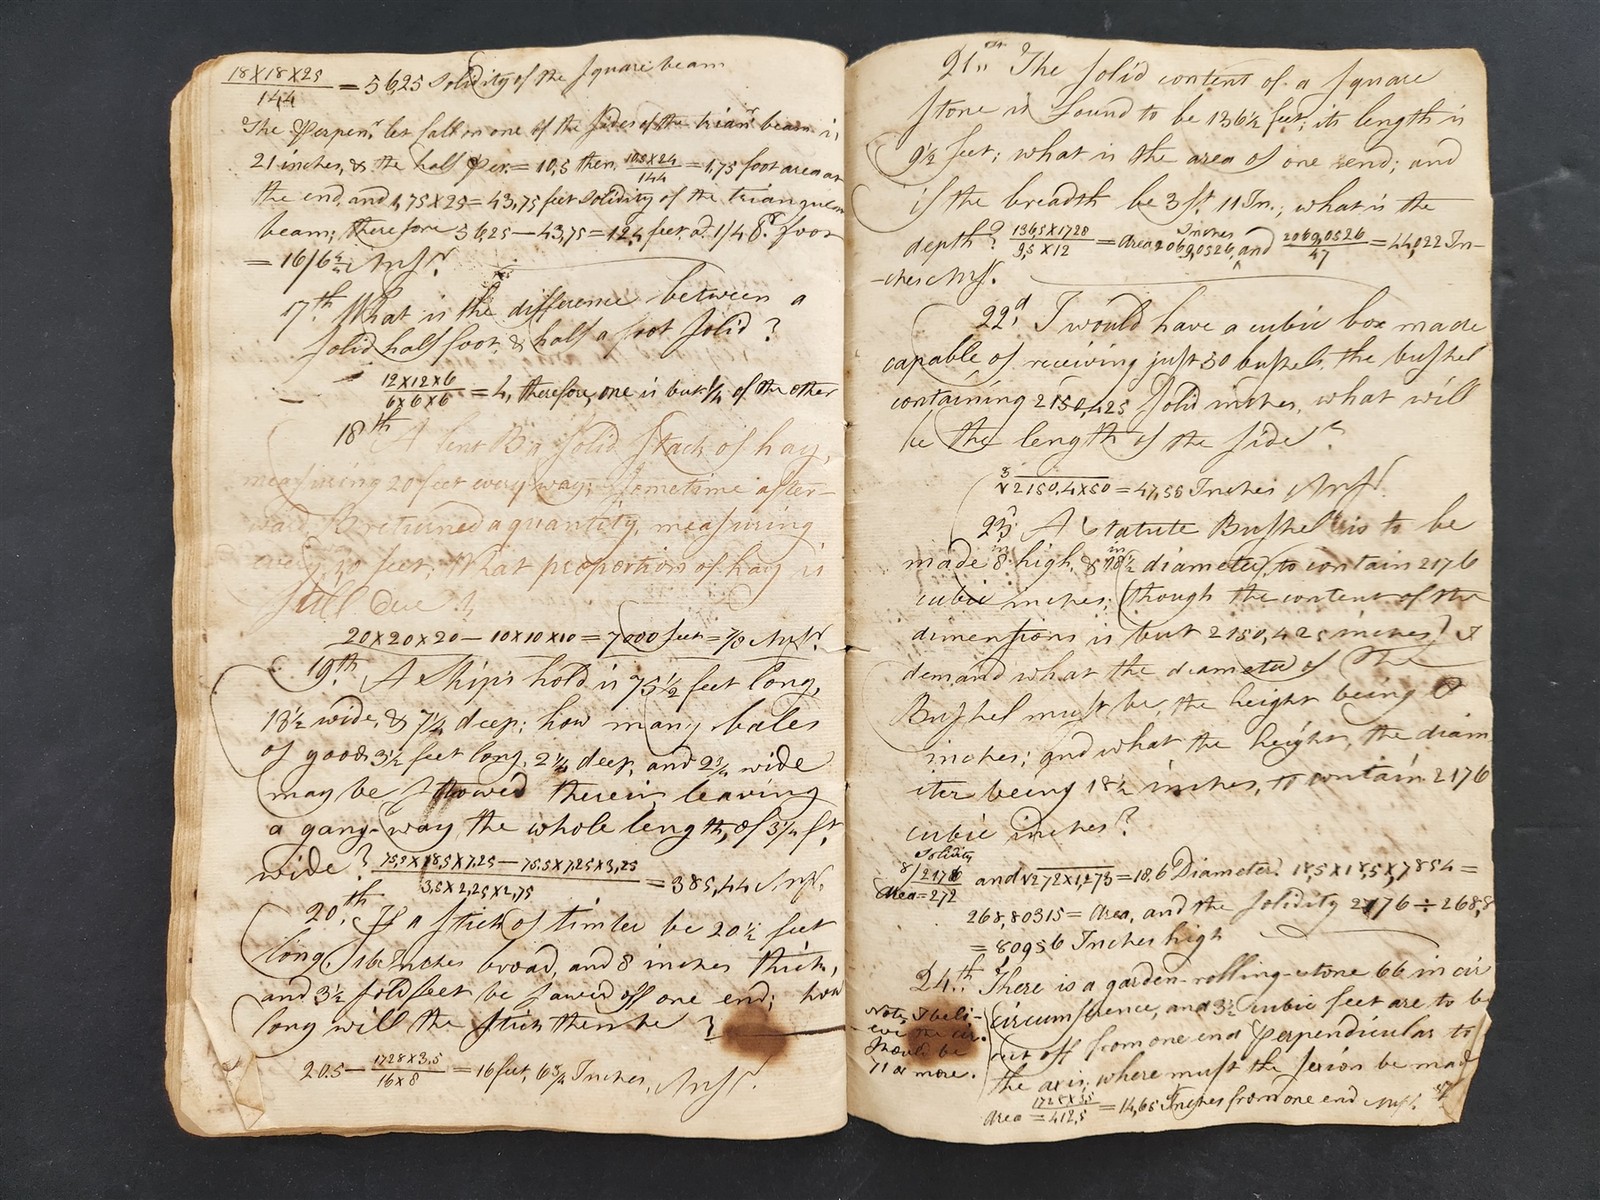 18×18×25
144
= 56,25 Solidity of the Square beam
The Perpenr. let fall on one of the sides of the trianr. beam is
21 inches, & the half Per. = 10,5 then 10,5×24
144 = 1,75 foot area at
the end, and 1,75×25 = 43,75 feet Solidity of the triangular
beam; therefore 56,25 – 43,75 = 12,4 feet. a. 1/4 Pr. foot
= 16/6 Ansr.
17th What is the difference between a
Solid half foot, & half a foot Solid?
12×12×6
6×6×6 = 4, therefore, one is but 1/4 of the other
18th A lent B a Solid Stack of hay,
measuring 20 feet every way; Sometime after-
ward, B returned a quantity, measuring
every 10 feet; What proportion of hay is
Still Due?
20×20×20 – 10×10×10 = 7000 feet = 7/8 Ansr.
19th A Ship's hold is 75 1/2 feet long,
18 1/2 wide, & 7 1/4 deep; how many bales
of goods 3 1/2 feet long, 2 1/4 deep, and 2 3/4 wide
may be Stowed therein leaving
a gang-way the whole length, of 3 1/4 ft.
wide? 75,5×18,5×7,25 – 75,5×7,25×3,25
3,5×2,25×2,75 = 385,44 Ansr.
20th If a Stick of timber be 20 1/2 feet
long, 16 Inches broad, and 8 inches thick,
and 3 1/2 solid feet be sawed off one end; how
long will the Stick then be?
20.5 – 1728×3.5
16×8 = 16 feet, 6 3/4 Inches, Ansr.
21st The Solid content of a Square
Stone is found to be 136 1/2 feet; its length is
9 1/2 feet; what is the area of one end; and
if the breadth be 3 ft. 11 In.; what is the
depth? 136,5×1728
9,5×12 = area 2069,0526, Inches and 2069,0526
47 = 44,022 In-
-ches Ansr.
22d. I would have a cubic box made
capable of receiving just 50 bushels, the bushel
containing 2150,425 Solid inches, what will
be the length of the Side?
3√2150,4×50 = 47,55 Inches Ansr.
23. A Statute Bushel is to be
made 8 in high, & 18 1/2 in diameter, to contain 2176
cubic inches; (though the content of the
dimensions is but 2150,425 inches) I
demand what the diameter of The
Bushel must be, the height being 8
inches; and what the height, the diam
iter being 18 1/2 inches, to contain 2176
cubic inches?
Solidity
8/2176
Area=272 and √272×1,273 = 18,6 Diameter. 18,5×18,5×,7854 =
268,80315 = Area, and the Solidity 2176 ÷ 268,8
= 8,0956 Inches high
24th.. There is a garden-rolling-stone 66 in cir
Circumference, and 3 1/2 cubic feet are to be
cut off from one end Perpendicular to
the axis; where must the Section be made
Note, I beli-
eve the cir.
Should be
71 or more.
Area 1728×3.5
= 412,5 = 14,65 Inches from one end Ansr.